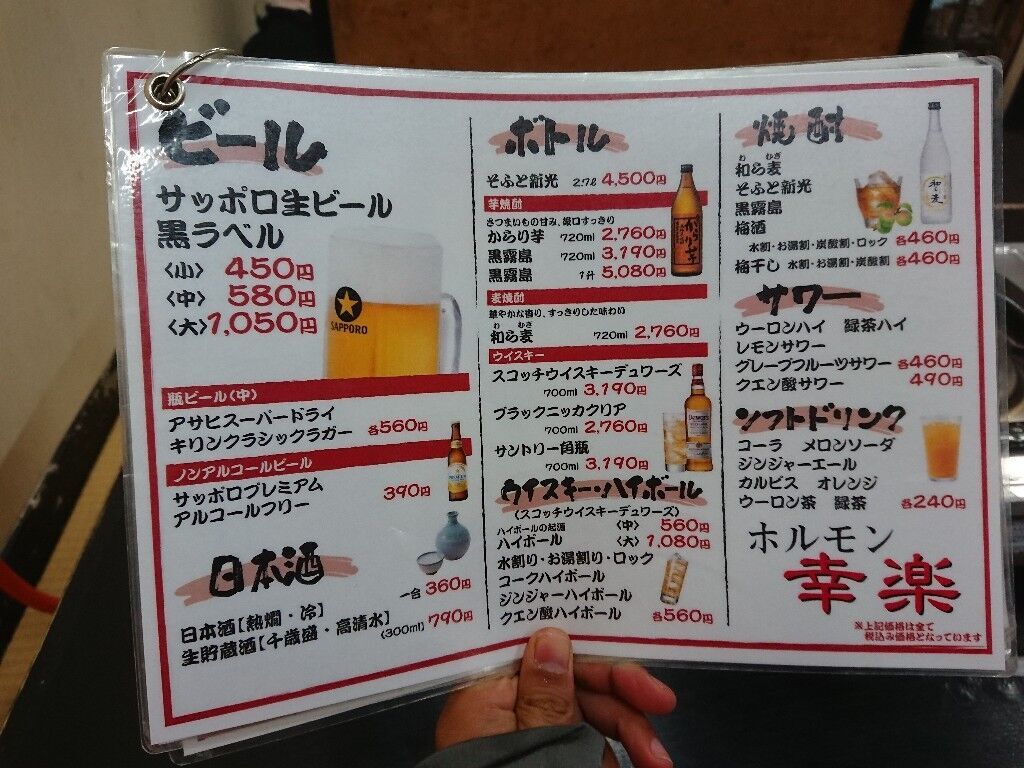 ビール
サッポロ生ビール
黒ラベル
〈小〉 450円
〈中〉 580円
〈大〉1,050円
SAPPORO
瓶ビール〈中〉
アサヒスーパードライ
キリンクラシックラガー 各560円
ノンアルコールビール
サッポロプレミアム
アルコールフリー 390円
日本酒
日本酒【熱燗・冷】 一合 360円
生貯蔵酒【千歳盛・高清水】(300ml) 790円
ボトル
そふと新光 2.7ℓ 4,500円
芋焼酎
さつまいもの甘み、後口すっきり
からり芋 720ml 2,760円
黒霧島 720ml 3,190円
黒霧島 1升 5,080円
麦焼酎
華やかな香り、すっきりした味わい
わ むぎ
和ら麦 720ml 2,760円
ウイスキー
スコッチウイスキーデュワーズ
700ml 3,190円
ブラックニッカクリア
700ml 2,760円
サントリー角瓶
700ml 3,190円
ウイスキー・ハイボール
(スコッチウイスキーデュワーズ)
ハイボールの起源 〈中〉 560円
ハイボール 〈大〉 1,080円
水割り・お湯割り・ロック
コークハイボール
ジンジャーハイボール
クエン酸ハイボール 各560円
焼酎
わ むぎ
和ら麦
そふと新光
黒霧島
梅酒
水割・お湯割・炭酸割・ロック 各460円
梅干し 水割・お湯割・炭酸割 各460円
サワー
ウーロンハイ 緑茶ハイ
レモンサワー
グレープフルーツサワー 各460円
クエン酸サワー 490円
ソフトドリンク
コーラ メロンソーダ
ジンジャーエール
カルピス オレンジ
ウーロン茶 緑茶 各240円
ホルモン
幸楽
※上記価格は全て
税込み価格となっています